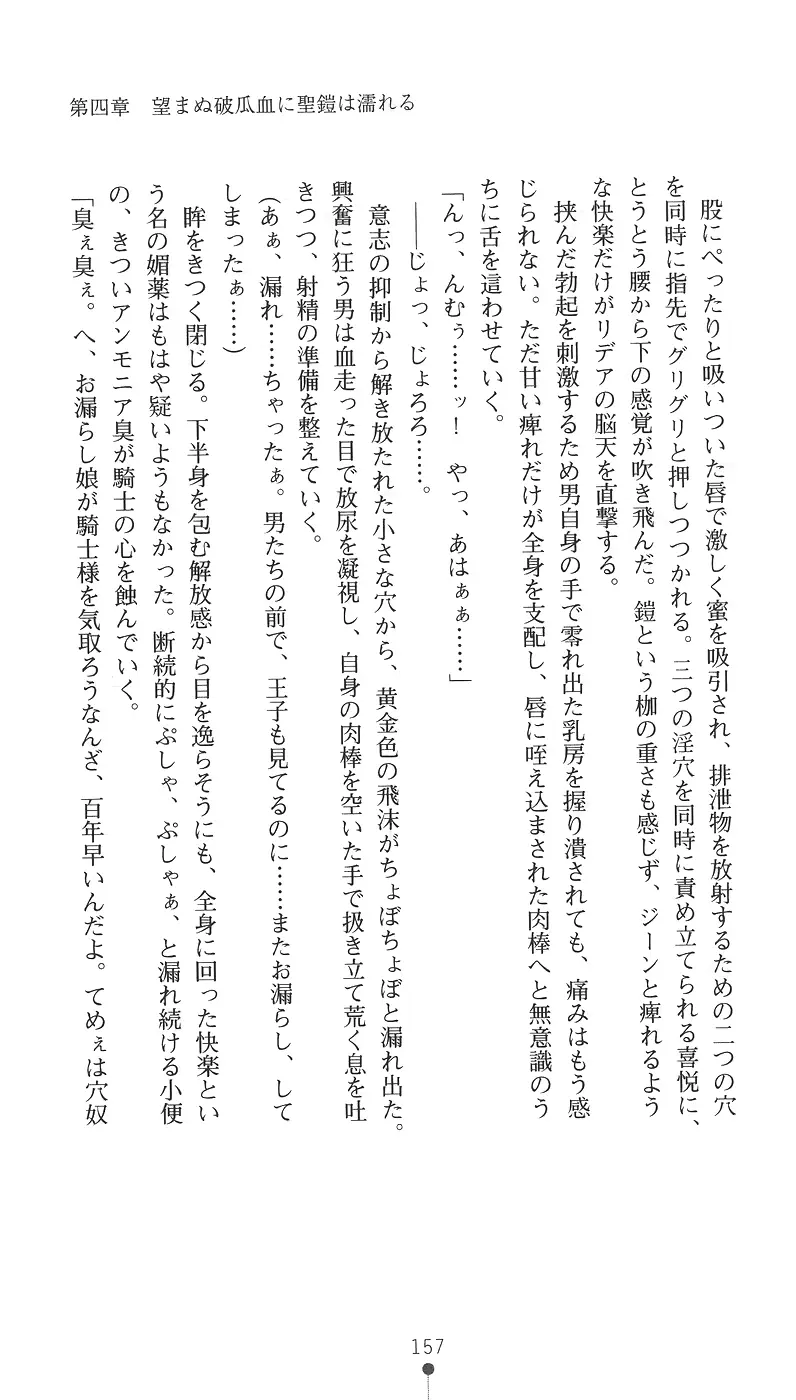 第四章　望まぬ破瓜血に聖鎧は濡れる
股にぺったりと吸いついた唇で激しく蜜を吸引され、排泄物を放射するための二つの穴
を同時に指先でグリグリと押しつつかれる。三つの淫穴を同時に責め立てられる喜悦に、
とうとう腰から下の感覚が吹き飛んだ。鎧という枷の重さも感じず、ジーンと痺れるよう
な快楽だけがリデアの脳天を直撃する。
挟んだ勃起を刺激するため男自身の手で零れ出た乳房を握り潰されても、痛みはもう感
じられない。ただ甘い痺れだけが全身を支配し、唇に咥え込まされた肉棒へと無意識のう
ちに舌を這わせていく。
「んっ、んむぅ……ッ！　やっ、あはぁぁ……」
――じょっ、じょろろ……。
意志の抑制から解き放たれた小さな穴から、黄金色の飛沫がちょぼちょぼと漏れ出た。
興奮に狂う男は血走った目で放尿を凝視し、自身の肉棒を空いた手で扱き立て荒く息を吐
きつつ、射精の準備を整えていく。
（あぁ、漏れ……ちゃったぁ。男たちの前で、王子も見てるのに……またお漏らし、して
しまったぁ……）
眸をきつく閉じる。下半身を包む解放感から目を逸らそうにも、全身に回った快楽とい
う名の媚薬はもはや疑いようもなかった。断続的にぷしゃ、ぷしゃぁ、と漏れ続ける小便
の、きついアンモニア臭が騎士の心を蝕んでいく。
「臭ぇ臭ぇ。へ、お漏らし娘が騎士様を気取ろうなんざ、百年早いんだよ。てめぇは穴奴
157